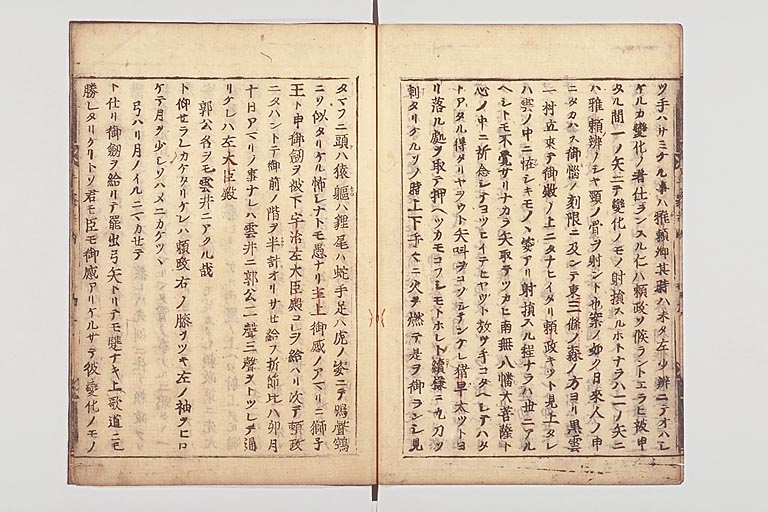 ツ手ハサミケル事ハ雅頼卿其時ハ未タ左少辨ニテオハシ
ケルカ變化ノ者仕ランスル仁ハ頼政ソ候ラントエラヒ被申
タル間一ノ矢ニテ變化ノモノ射損スルホトナラハ二ノ矢ニ
ハ雅頼辨ノシヤ頸ノ骨ヲ射ント也案ノ如ク日来人ノ申
ニタカハス御惱ノ剋限ニ及ンテ東三條ノ森ノ方ヨリ黒雲
一村立来テ御殿ノ上ニタナヒイタリ頼政キツト見上タレ
ハ雲ノ中ニ恠シキモノヽ姿アリ射損スル程ナラハ世ニアル
ヘシトモ不覚サリナカラ矢取テツカヒ南無八幡大菩薩ト
心ノ中ニ祈念シテヨツヒイテヒヤウト放ツ手コタヘシテハタ
トアタル得タリヤヲウト矢叫ヲコソシテンケレ猪早太ツトヨ
リ落ル處ヲ取テ押ヘツカモコフシモトホレト續様ニ九刀ソ
刺タリケルソノ時上下手々ニ火ヲ燃テ是ヲ御ランシ見
タマフニ頭ハ猿軀ハ狸尾ハ蛇手足ハ虎ノ姿ニテ鳴聲鵼
ニソ似タリケル怖シナトモ愚ナリ主上御感ノアマリニ獅子
王ト申御劔ヲ被下宇治左大臣殿コレヲ給ハリ次テ頼政
ニタハントテ御前ノ階ヲ半計オリサセ給フ折節比ハ卯月
十日アマリノ事ナレハ雲井ニ郭公二聲三聲ヲトツレテ通
リケレハ左大臣殿
郭公名ヲモ雲井ニアクル哉
ト仰セラレカケタリケレハ頼政右ノ膝ヲツキ左ノ袖ヲヒロ
ケテ月ヲ少シソハメニカケツヽ
弓ハリ月ノイルニマカセテ
ト仕リ御劔ヲ給リテ罷出弓矢トリテモ雙ナキ上歌道ニモ
勝レタリケリトソ君モ臣モ御感アリケルサテ彼變化ノモノ